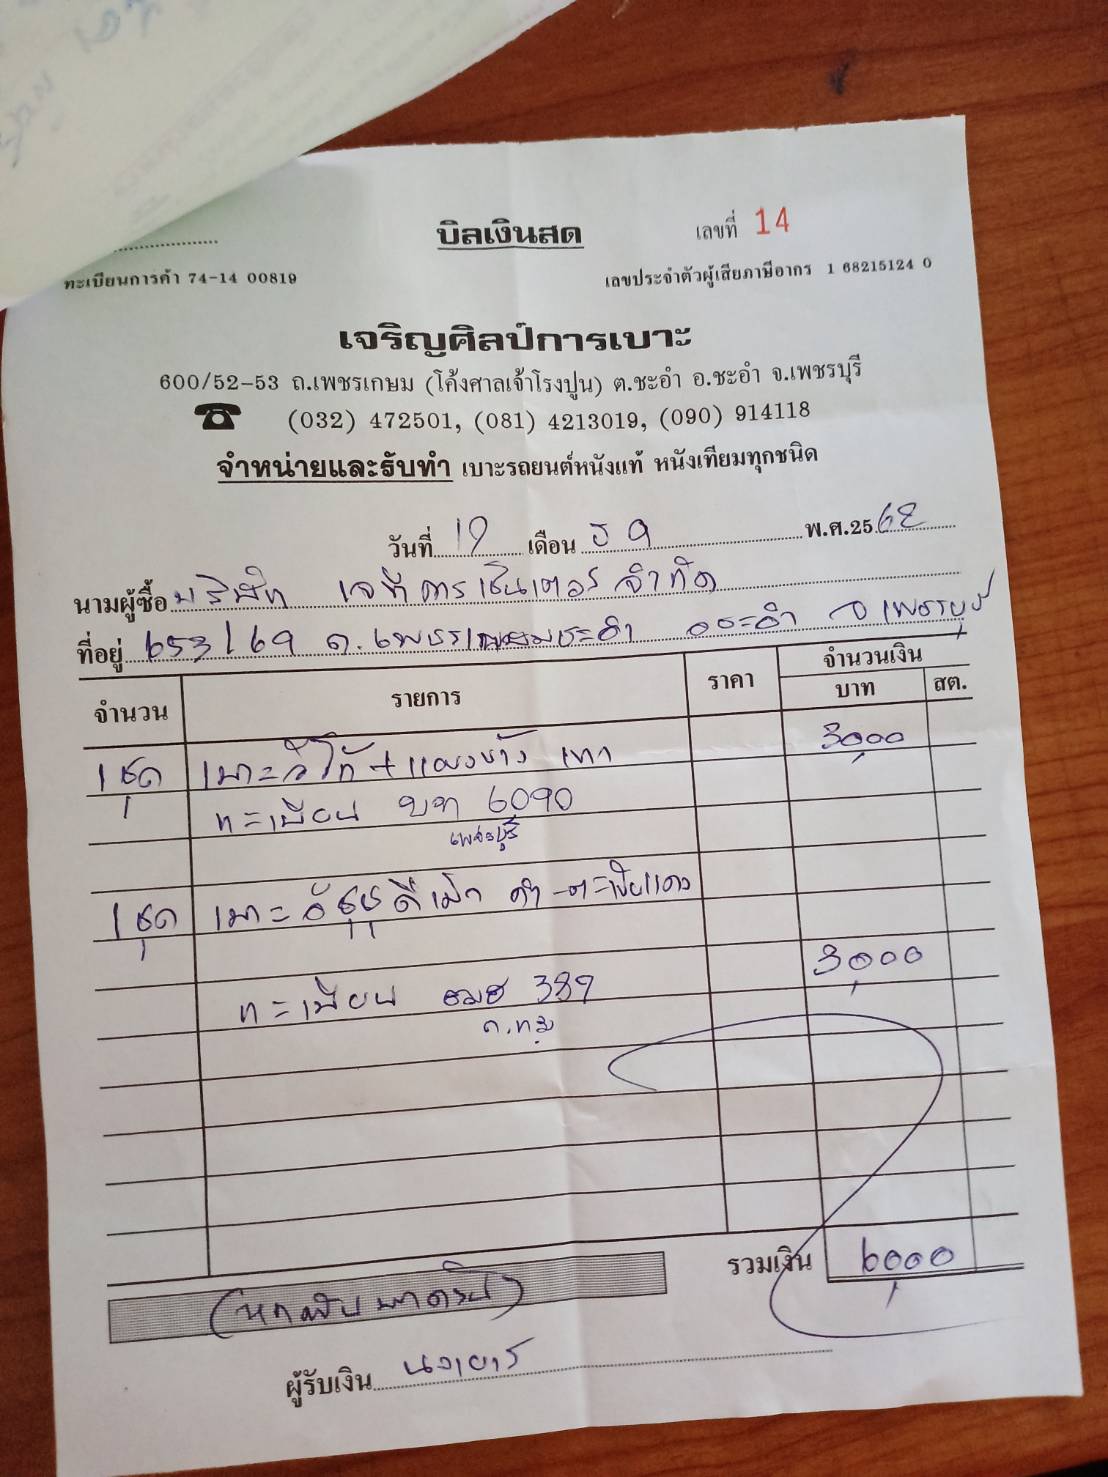 บิลเงินสด เลขที่ 14
ทะเบียนการค้า 74-14 00819 เลขประจำตัวผู้เสียภาษีอากร 1 68215124 0
เจริญศิลป์การเบาะ
600/52-53 ถ.เพชรเกษม (โค้งศาลเจ้าโรงปูน) ต.ชะอำ อ.ชะอำ จ.เพชรบุรี
☎ (032) 472501, (081) 4213019, (090) 914118
จำหน่ายและรับทำ เบาะรถยนต์หนังแท้ หนังเทียมทุกชนิด
วันที่ 19 เดือน ธค พ.ศ.2562
นามผู้ซื้อ บริษัท เจที คาร เซ็นเตอร์ จำกัด
ที่อยู่ 653/69 ถ.เพชรเกษม ชะอำ อ ชะอำ จ เพชรบุรี
จำนวน รายการ ราคา จำนวนเงิน
บาท สต.
1 ชุด เบาะวีโก้ + แผงข้าง เทา 3,000
ทะเบียน บท 6090
เพชรบุรี
1 ชุด เบาะอีซูซุดีแม็ก ดำ-ตะเข็บแดง
3,000
ทะเบียน 389
ก.ทม
รวมเงิน 6,000
(หกพันบาทถ้วน)
ผู้รับเงิน นงเยาว์